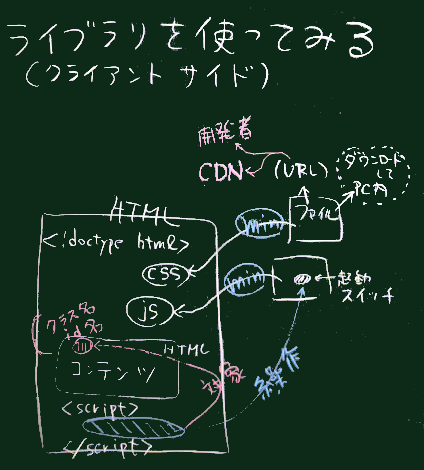 ライブラリを使ってみる
(クライアントサイド)
開発者
CDN
(URL)
ダウンロード
して
PC内
HTML
min
ファイル
<!doctype html>
css
min
起動
スイッチ
js
クラス名
id名
HTML
コンテンツ
対象
操作
<script>
</script>